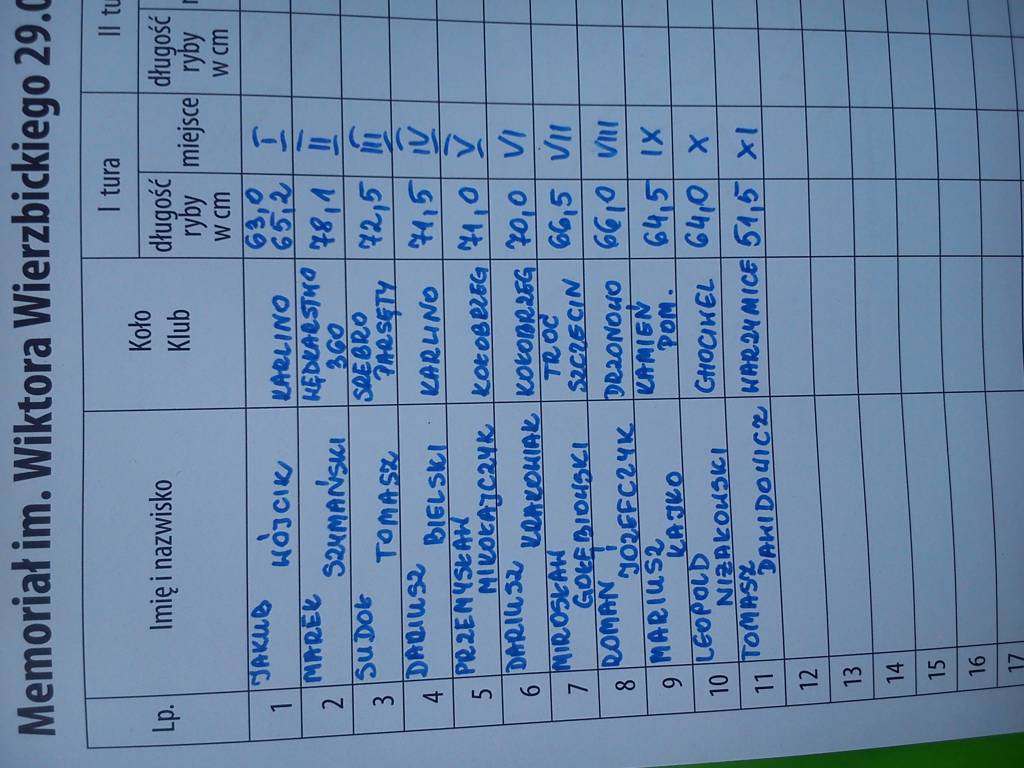 Memoriał im. Wiktora Wierzbickiego 29.0
Lp. Imię i nazwisko Koło Klub I tura II tu
długość ryby w cm miejsce długość ryby w cm
1 JAKUB WÓJCIK KARLINO 63,0 65,2 I
2 MAREK SZYMAŃSKI WĘDKARSTWO 360 78,1 II
3 SUDOŁ TOMASZ SREBRO PARSĘTY 72,5 III
4 DARIUSZ BIELSKI KARLINO 71,5 IV
5 PRZEMYSŁAW MIKOŁAJCZYK KOŁOBRZEG 71,0 V
6 DARIUSZ KRAKOWIAK KOŁOBRZEG 70,0 VI
7 MIROSŁAW GOŁĘBIOWSKI TROĆ SZCZECIN 66,5 VII
8 ROMAN JÓZEFCZYK DRZONOWO 66,0 VIII
9 MARIUSZ KAJKO KAMIEŃ POM. 64,5 IX
10 LEOPOLD NIZAKOWSKI CHOCIWEL 64,0 X
11 TOMASZ DAWIDOWICZ WARDYMICE 51,5 XI
12
13
14
15
16
17